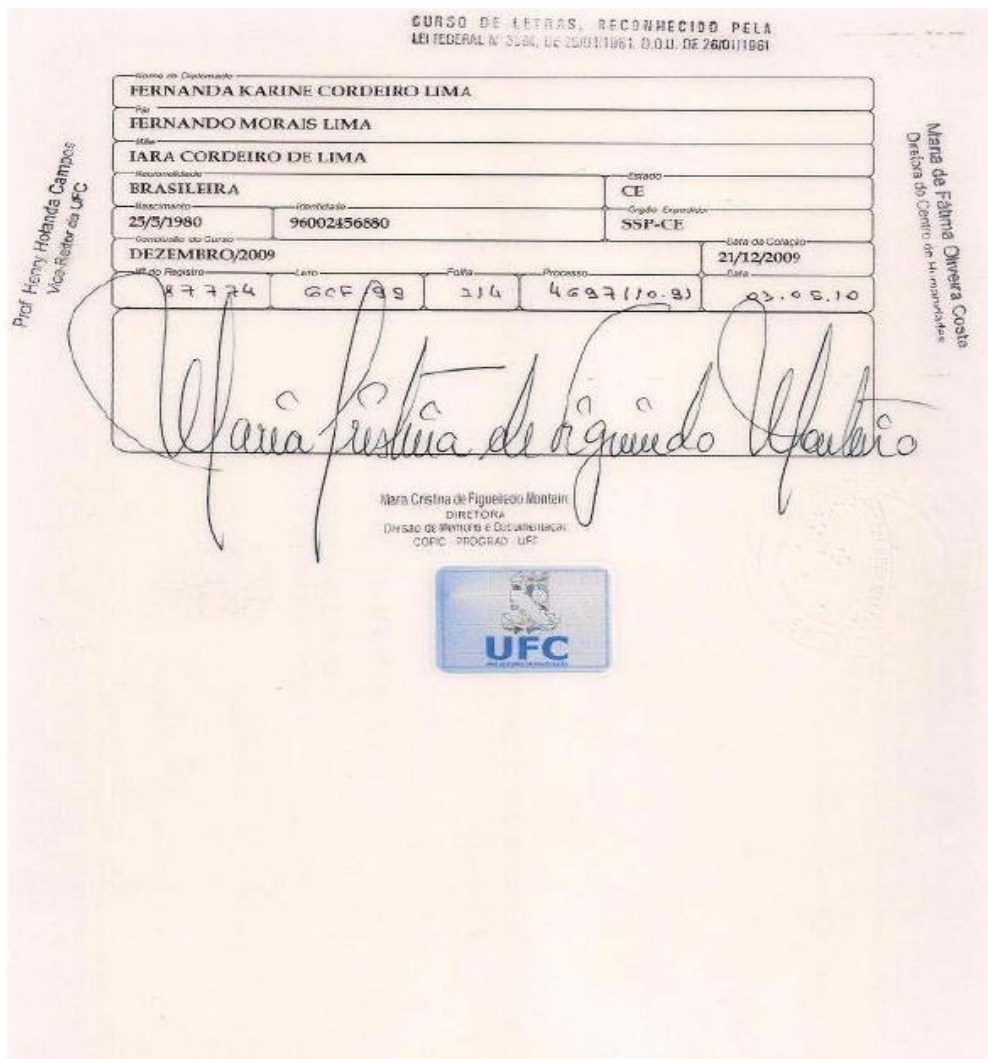 CURSO DE LETRAS, RECONHECIDO PELA
LEI FEDERAL Nº DE 25/01/1961. D.O.U. DE 26/01/1961
Nome do Diplomado
FERNANDA KARINE CORDEIRO LIMA
Pai
FERNANDO MORAIS LIMA
Mãe
IARA CORDEIRO DE LIMA
Nacionalidade Estado
BRASILEIRA CE
Nascimento Identidade Órgão Expedidor
25/5/1980 96002456880 SSP-CE
Conclusão do Curso Data da Colação
DEZEMBRO/2009 21/12/2009
Nº do Registro Livro Folha Processo Data
87774 GCF/99 214 4697(10.9) 03.05.10
Maria Cristina de Figueiredo Monteiro
Maria Cristina de Figueiredo Monteiro
DIRETORA
Divisão de Memória e Documentação
COPIC - PROGRAD - UFC
UFC
Prof. Henry Holanda Campos
Vice-Reitor da UFC
Maria de Fátima Oliveira Costa
Diretora do Centro de Humanidades